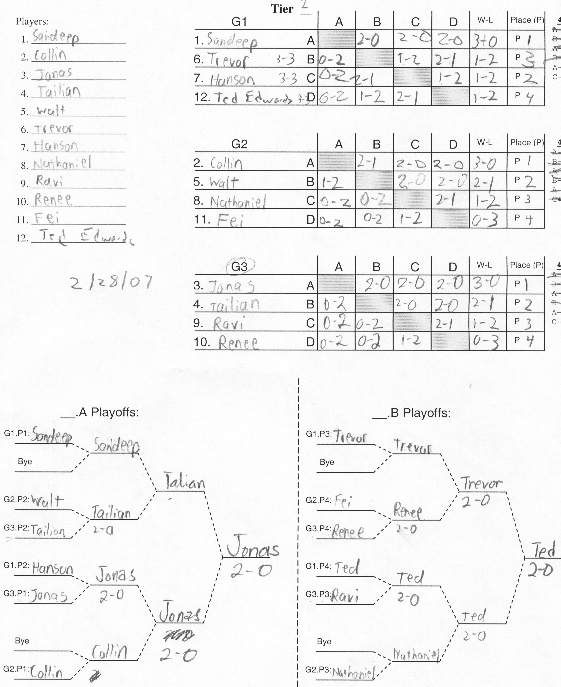 Tier 2
Players:
1. Sandeep
2. Collin
3. Jonas
4. Tailian
5. Walt
6. Trevor
7. Hanson
8. Nathaniel
9. Ravi
10. Renee
11. Fei
12. Ted Edwards
2/28/07
G1 A B C D W-L Place (P)
1. Sandeep A 2-0 2-0 2-0 3-0 P 1
6. Trevor 3-3 B 0-2 1-2 2-1 1-2 P 3
7. Hanson 3-3 C 0-2 2-1 1-2 1-2 P 2
12. Ted Edwards D 0-2 1-2 2-1 1-2 P 4
G2 A B C D W-L Place (P)
2. Collin A 2-1 2-0 2-0 3-0 P 1
5. Walt B 1-2 2-0 2-0 2-1 P 2
8. Nathaniel C 0-2 0-2 2-1 1-2 P 3
11. Fei D 0-2 0-2 1-2 0-3 P 4
G3 A B C D W-L Place (P)
3. Jonas A 2-0 2-0 2-0 3-0 P 1
4. Tailian B 0-2 2-0 2-0 2-1 P 2
9. Ravi C 0-2 0-2 2-1 1-2 P 3
10. Renee D 0-2 0-2 1-2 0-3 P 4
__.A Playoffs:
G1.P1: Sandeep
Sandeep
Bye
Talian
G2.P2: Walt
Tailian
2-0
G3.P2: Tailian
Jonas
2-0
G1.P2: Hanson
Jonas
2-0
G3.P1: Jonas
Jonas
2-0
Bye
Collin
G2.P1: Collin
__.B Playoffs:
G1.P3: Trevor
Trevor
Bye
Trevor
2-0
G2.P4: Fei
Renee
2-0
G3.P4: Renee
Ted
2-0
G1.P4: Ted
Ted
2-0
G3.P3: Ravi
Ted
2-0
Bye
Nathaniel
G2.P3: Nathaniel